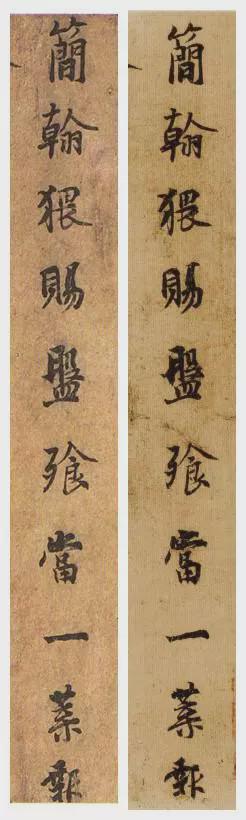 簡翰猥賜盤飱當一葉報
簡翰猥賜盤飱當一葉報